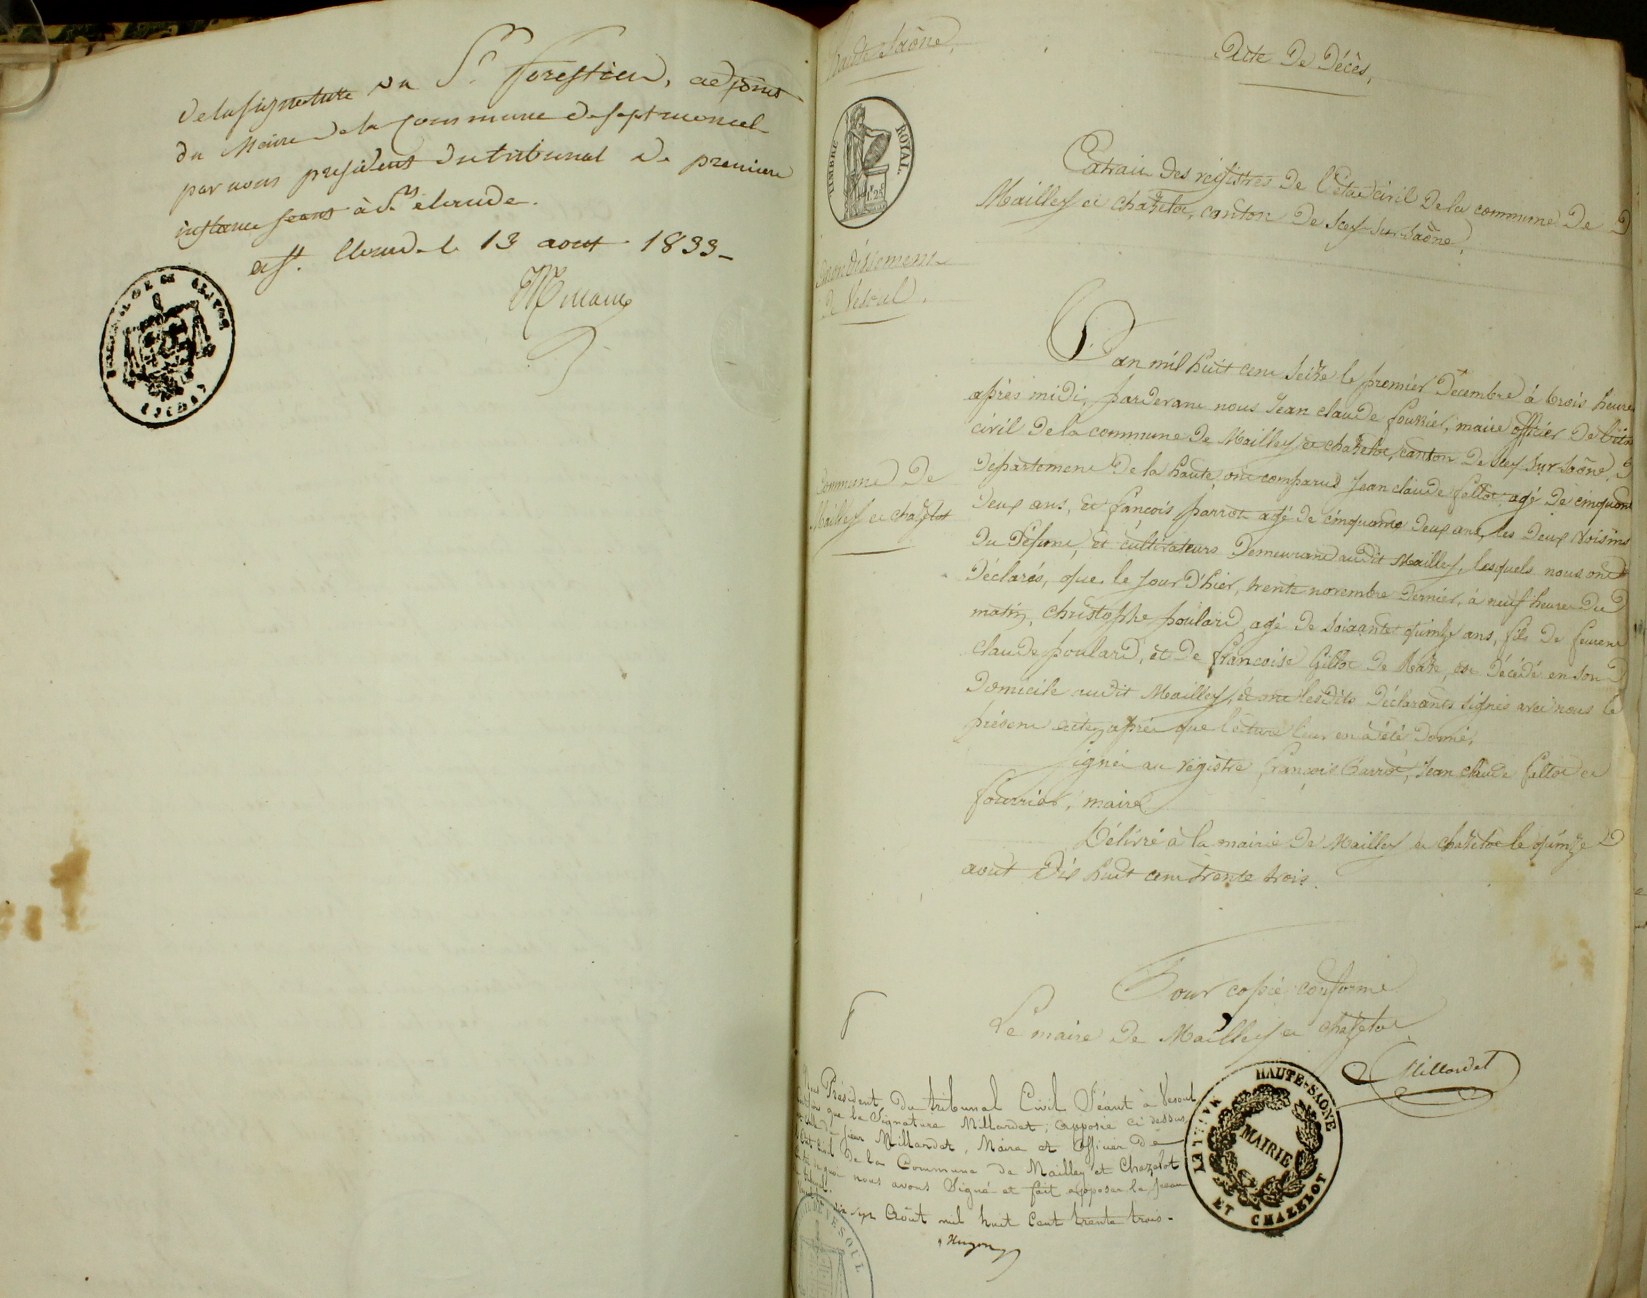 de la signature du Sr. forestier, adjoint
du Maire de la commune de septmoncel
par nous président du tribunal de premiere
instance seant à St. claude.
à St. Claude le 13 aout 1833
TIMBRE ROYAL
Haute Saône,
Arrondissement
de Vesoul.
Commune De
Mailley et chazelot
Acte De Décès,
Extrait des registres De l'état civil De la commune De
Mailley et chazelot, canton De Scey-sur-Saône,
L'an mil huit cent seize le premier Décembre à trois heures
après midi, pardevant nous Jean claude fourrier, maire officier De l'état
civil De la commune De Mailley et chazelot, canton De Scey sur Saône,
Département De la haute, ont comparus Jean claude fallot agé De cinquante
Deux ans, et françois parrot agé de cinquante Deux ans, les Deux voisins
Du Défunt, et cultivateurs Demeurant audit Mailley, lesquels nous ont
Déclarés, que le jour D'hier, trente novembre Dernier, à neuf heures Du
matin, christophe poulard agé De soixante quinze ans, fils De
claude poulard, et De francoise De est Décédé en son
Domicile audit Mailley, et ont lesdits Déclarants signés avec nous le
présent acte, après que lecture leur en a été Donné.
signé au régistre françois Parrot, Jean claude fallot et
fourrier, maire
Délivré à la mairie De Mailley et chazelot le quinze
aout Dix huit cent trente trois.
Pour copie conforme
Le maire De Mailley et chazelot
Millardet
Nous Président du tribunal Civil Séant à Vesoul
que la Signature Millardet, apposée ci dessus,
est celle du sieur Millardet, Maire et Officier de
l'état civil de la Commune de Mailley et Chazelot
nous avons signé et fait apposer le sceau
dix sept Août mil huit Cent trente trois.
Hugon
HAUTE-SAÔNE
MAIRIE
MAILLEY ET CHAZELOT
DE VESOUL